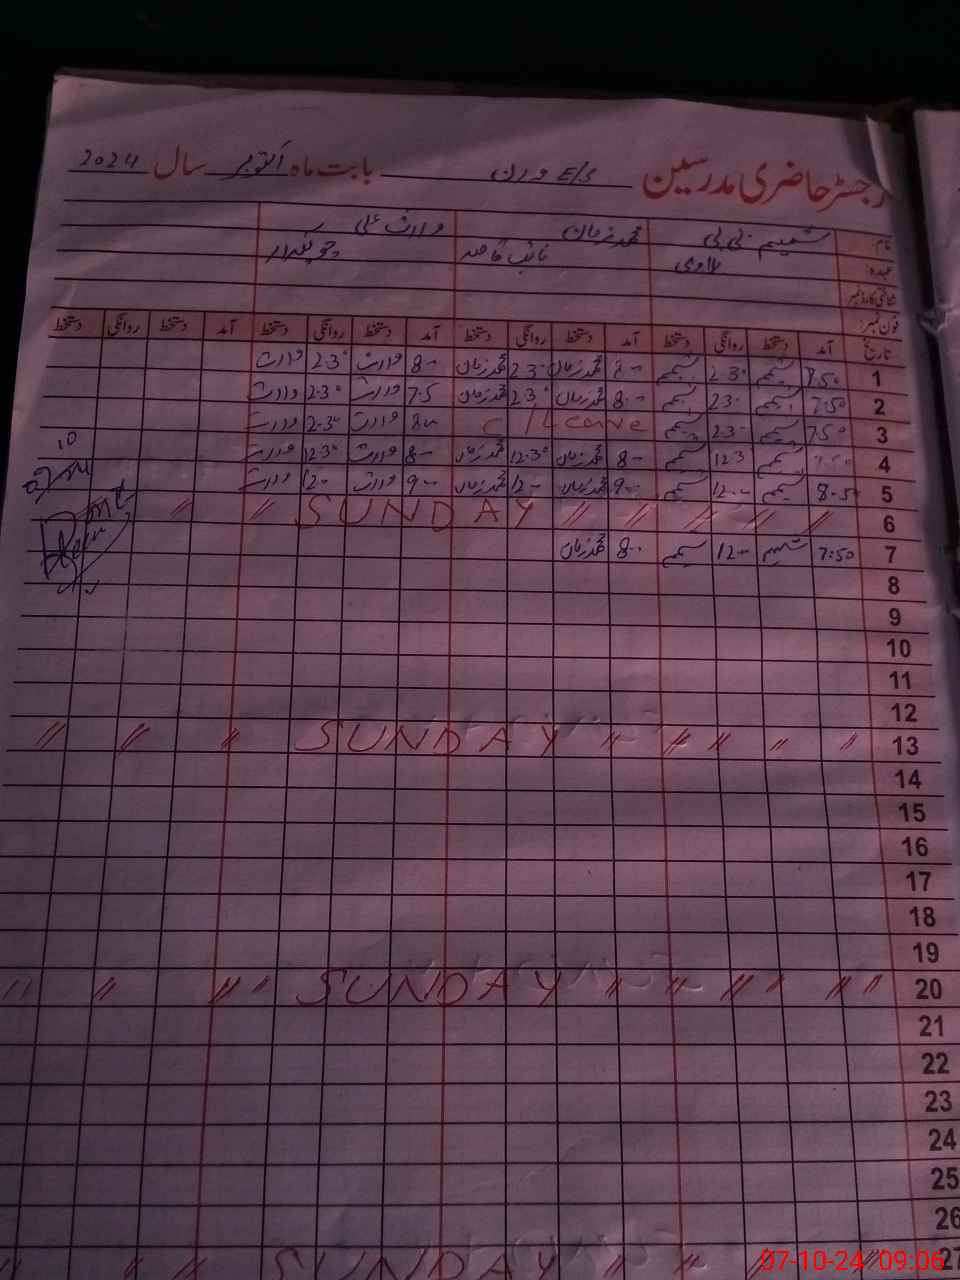 رجسٹر حاضری مدرسین E/S ورن بابت ماه اکتوبر سال 2024
نام: شمیم بی بی محمد زمان وارث علی
عہدہ: لاوی نائب قاصد چوکیدار
شناختی کارڈ نمبر
فون نمبر:
تاریخ آمد دستخط روانگی دستخط آمد دستخط روانگی دستخط آمد دستخط روانگی دستخط آمد دستخط روانگی دستخط
1 7.50 شمیم 2.30 شمیم 8-00 محمد زمان 2.30 محمد زمان 8-00 وارث 2.30 وارث
2 7.50 شمیم 2.30 شمیم 8.00 محمد زمان 2.30 محمد زمان 7.5 وارث 2.30 وارث
3 7.50 شمیم 2.30 شمیم C/Leave 8-00 وارث 2.30 وارث
4 7.50 شمیم 12.3 شمیم 8-00 محمد زمان 12.30 محمد زمان 8-00 وارث 12.30 وارث
5 8.50 شمیم 12-00 شمیم 9-00 محمد زمان 12-00 محمد زمان 9-00 وارث 12-0 وارث
6 〃 〃 〃 〃 〃 SUNDAY 〃 〃
7 7:50 شمیم 12-00 شمیم 8-0 محمد زمان
8
9
10
11
12
13 〃 〃 〃 〃 〃 SUNDAY 〃 〃 〃
14
15
16
17
18
19
20 〃 〃 〃 〃 〃 〃 SUNDAY 〃 〃 〃 〃
21
22
23
24
25
26
27 〃 〃 〃 SUNDAY 〃 〃 〃
07-10-24 09:06